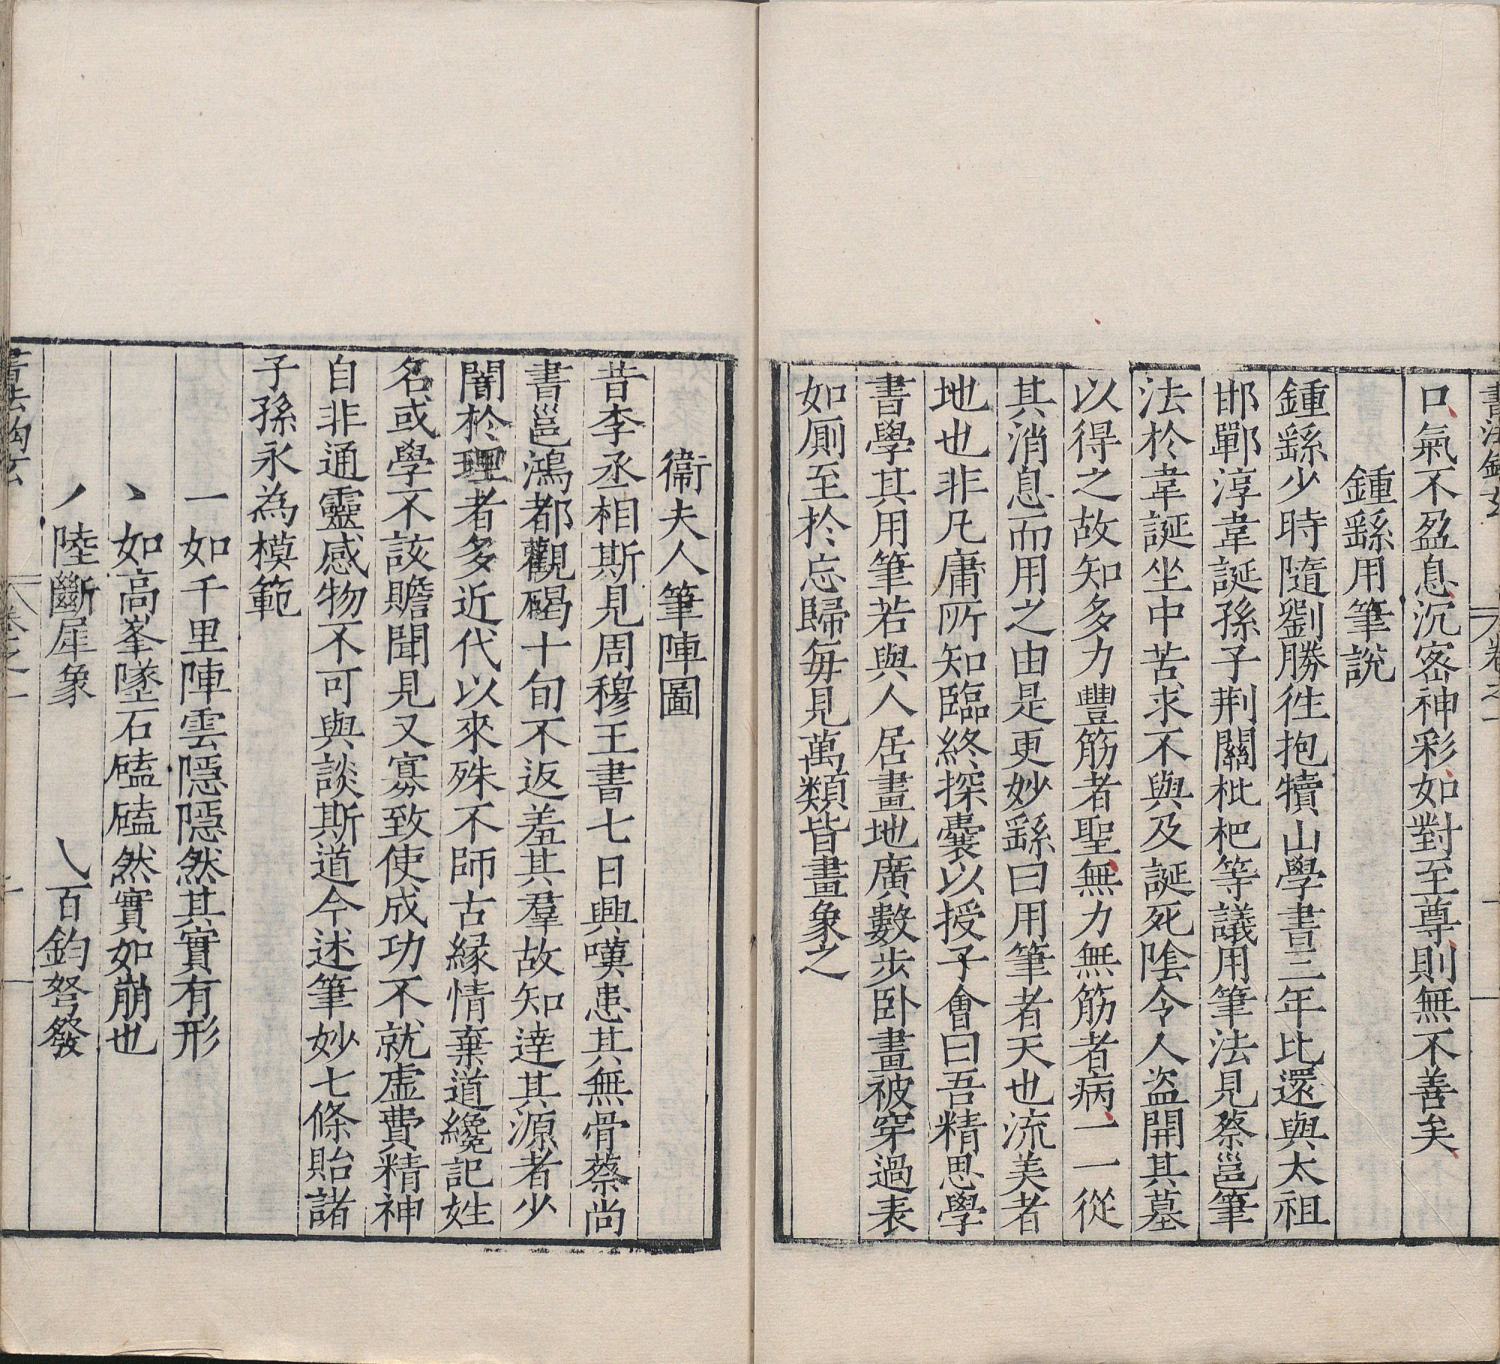 書法鉤玄 卷之一
口氣不盈息沉密神彩如對至尊則無不善矣
鍾繇用筆說
鍾繇少時隨劉勝徃抱犢山學書三年比還與太祖
邯鄲淳韋誕孫子荆關枇杷等議用筆法見蔡邕筆
法於韋誕坐中苦求不與及誕死陰令人盜開其墓
以得之故知多力豐筋者聖無力無筋者病一一從
其消息而用之由是更妙繇曰用筆者天也流美者
地也非凡庸所知臨終探囊以授子會曰吾精思學
書學其用筆若與人居畫地廣數步卧畫被穿過表
如厠至於忘歸每見萬類皆畫象之
衞夫人筆陣圖
昔李丞相斯見周穆王書七日興嘆患其無骨蔡尚
書邕鴻都觀碣十旬不返羞其羣故知達其源者少
闇於理者多近代以來殊不師古緣情棄道纔記姓
名或學不該贍聞見又寡致使成功不就虛費精神
自非通靈感物不可與談斯道今述筆妙七條貽諸
子孫永為模範
一如千里陣雲隱隱然其實有形
丶如高峯墜石磕磕然實如崩也
丿陸斷犀象 ㇏百鈞弩發
書法鉤玄 卷之一 十一